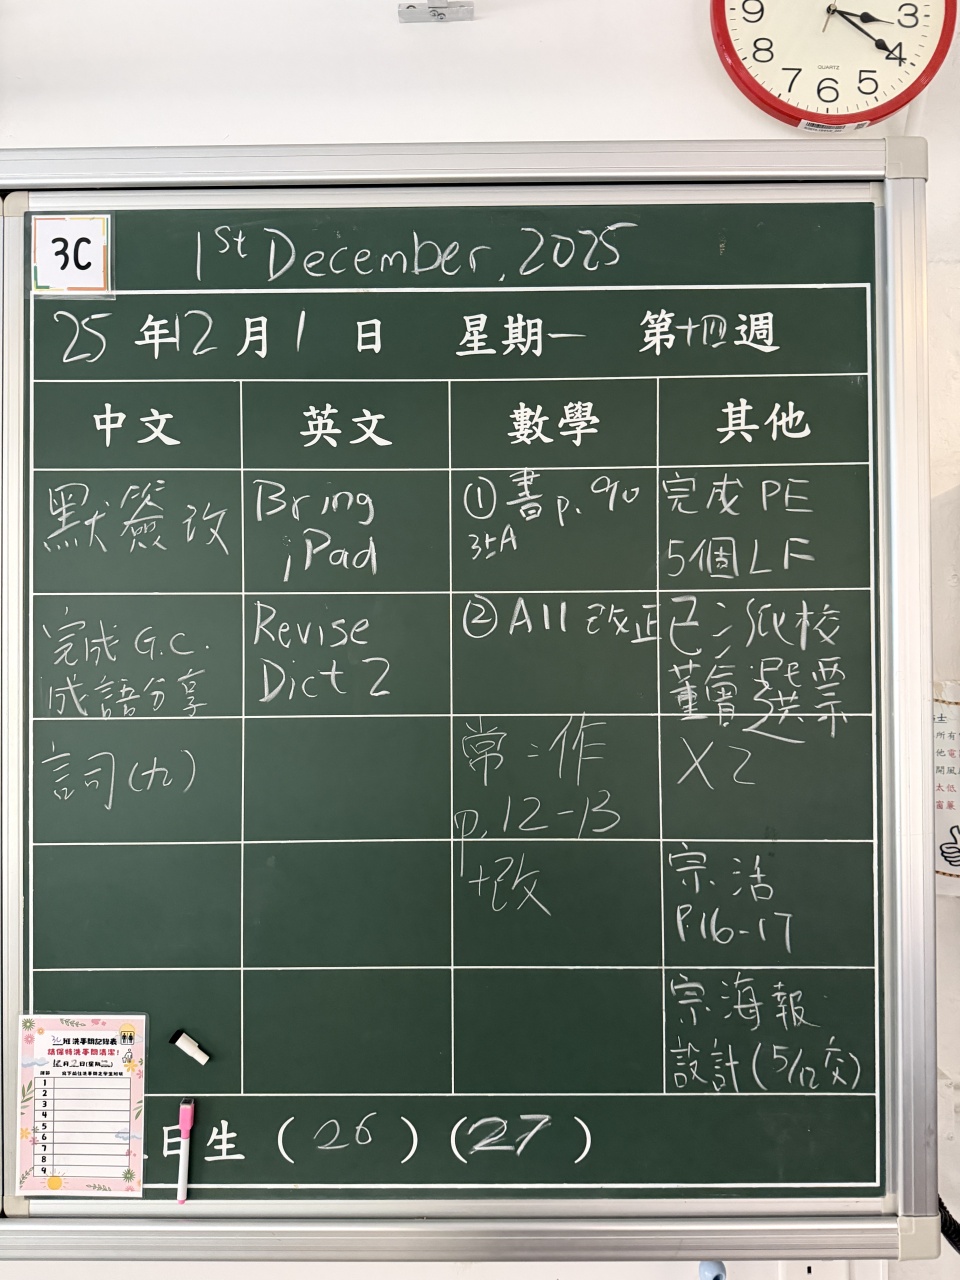 9
3
8
4
7
6
5
QUARTZ
3C
1st December, 2025
25 年 12 月 1 日 星期一 第十四週
中文 英文 數學 其他
默簽改
Bring
iPad
① 書 p. 90
35A
完成 PE
5個 LF
完成 G.C.
成語分享
Revise
Dict 2
② All 改正
已派校
董會選票
詞(九)
常作
p. 12-13
X2
+改
宗活
P.16-17
宗海報
設計(5/12交)
3C班洗手間記錄表
請保持洗手間清潔!
12月2日(星期)
1
2
3
4
5
6
7
8
9
日生 (26) (27)
士
所有
他電
開風
太低
富嚴